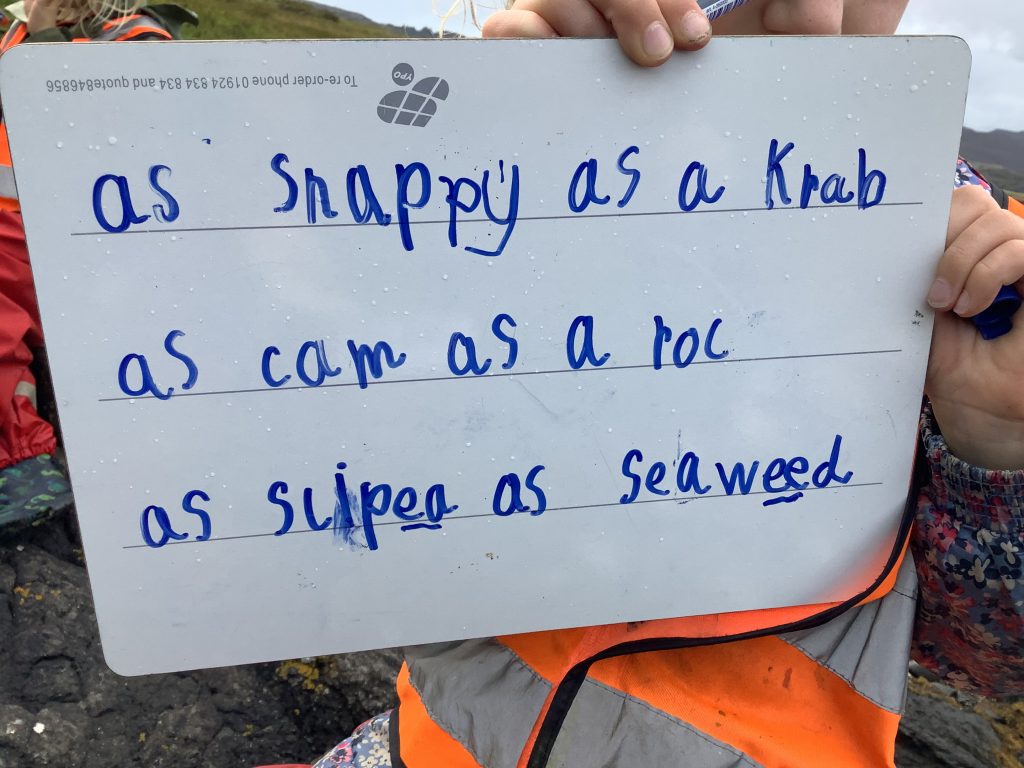 To re-order phone 01924 834 834 and quote846856
YPO
as snappy as a Krab
as cam as a roc
as slipea as seaweed